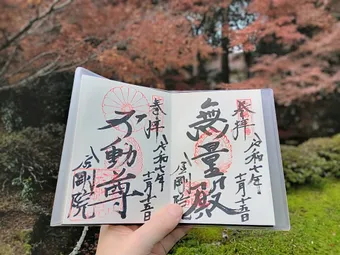 奉拝
令和七年
十一月十五日
無量殿
金剛院
奉拝
令和七年
十一月十五日
不動尊
金剛院